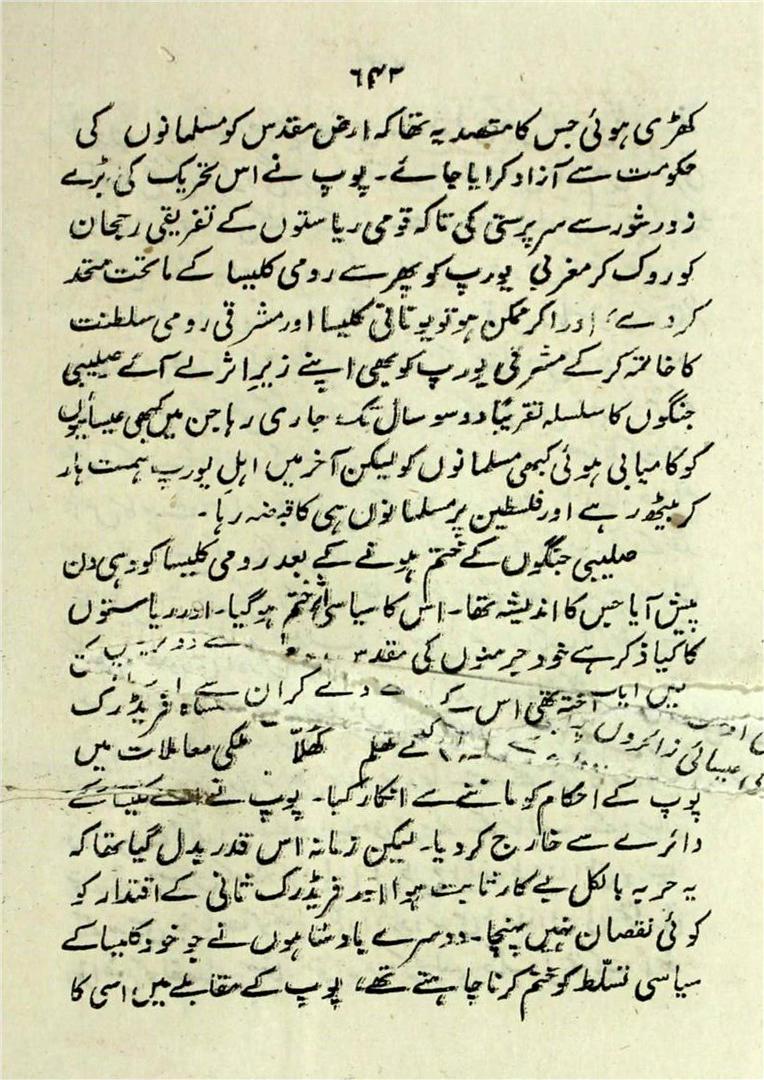 ۶۴۲
کھڑی ہوئی جس کا مقصد یہ تھا کہ ارض مقدس کو مسلمانوں کی
حکومت سے آزاد کرایا جائے۔ پوپ نے اس تحریک کی بڑے
زور شور سے سرپرستی کی تاکہ قومی ریاستوں کے تفریقی رجحان
کو روک کر مغربی یورپ کو پھر سے رومی کلیسا کے ماتحت متحد
کر دے، اور اگر ممکن ہو تو یونانی کلیسا اور مشرقی رومی سلطنت
کا خاتمہ کر کے مشرقی یورپ کو بھی اپنے زیرِ اثر لے آئے صلیبی
جنگوں کا سلسلہ تقریباً دو سو سال تک جاری رہا جن میں کبھی عیسائیوں
کو کامیابی ہوئی کبھی مسلمانوں کو لیکن آخر میں اہلِ یورپ ہمت ہار
کر بیٹھ رہے اور فلسطین پر مسلمانوں ہی کا قبضہ رہا۔
صلیبی جنگوں کے ختم ہونے کے بعد رومی کلیسا کو وہی دن
پیش آیا جس کا اندیشہ تھا۔ اس کا سیاسی اثر ختم ہو گیا۔ اور ریاستوں
کا کیا ذکر ہے خود جرمنوں کی مقدس
میں تھی اس دے کر ان سے
عیسائی زائروں فریڈرک
نے کھلم کھلّا ملکی معاملات میں
پوپ کے احکام کو ماننے سے انکار کیا۔ پوپ نے اسے کلیسا کے
دائرے سے خارج کر دیا۔ لیکن زمانہ اس قدر بدل گیا تھا کہ
یہ حربہ بالکل بے کار ثابت ہوا اور فریڈرک ثانی کے اقتدار کو
کوئی نقصان نہیں پہنچا۔ دوسرے بادشاہوں نے جو خود کلیسا کے
سیاسی تسلّط کو ختم کرنا چاہتے تھے، پوپ کے مقابلے میں اسی کا